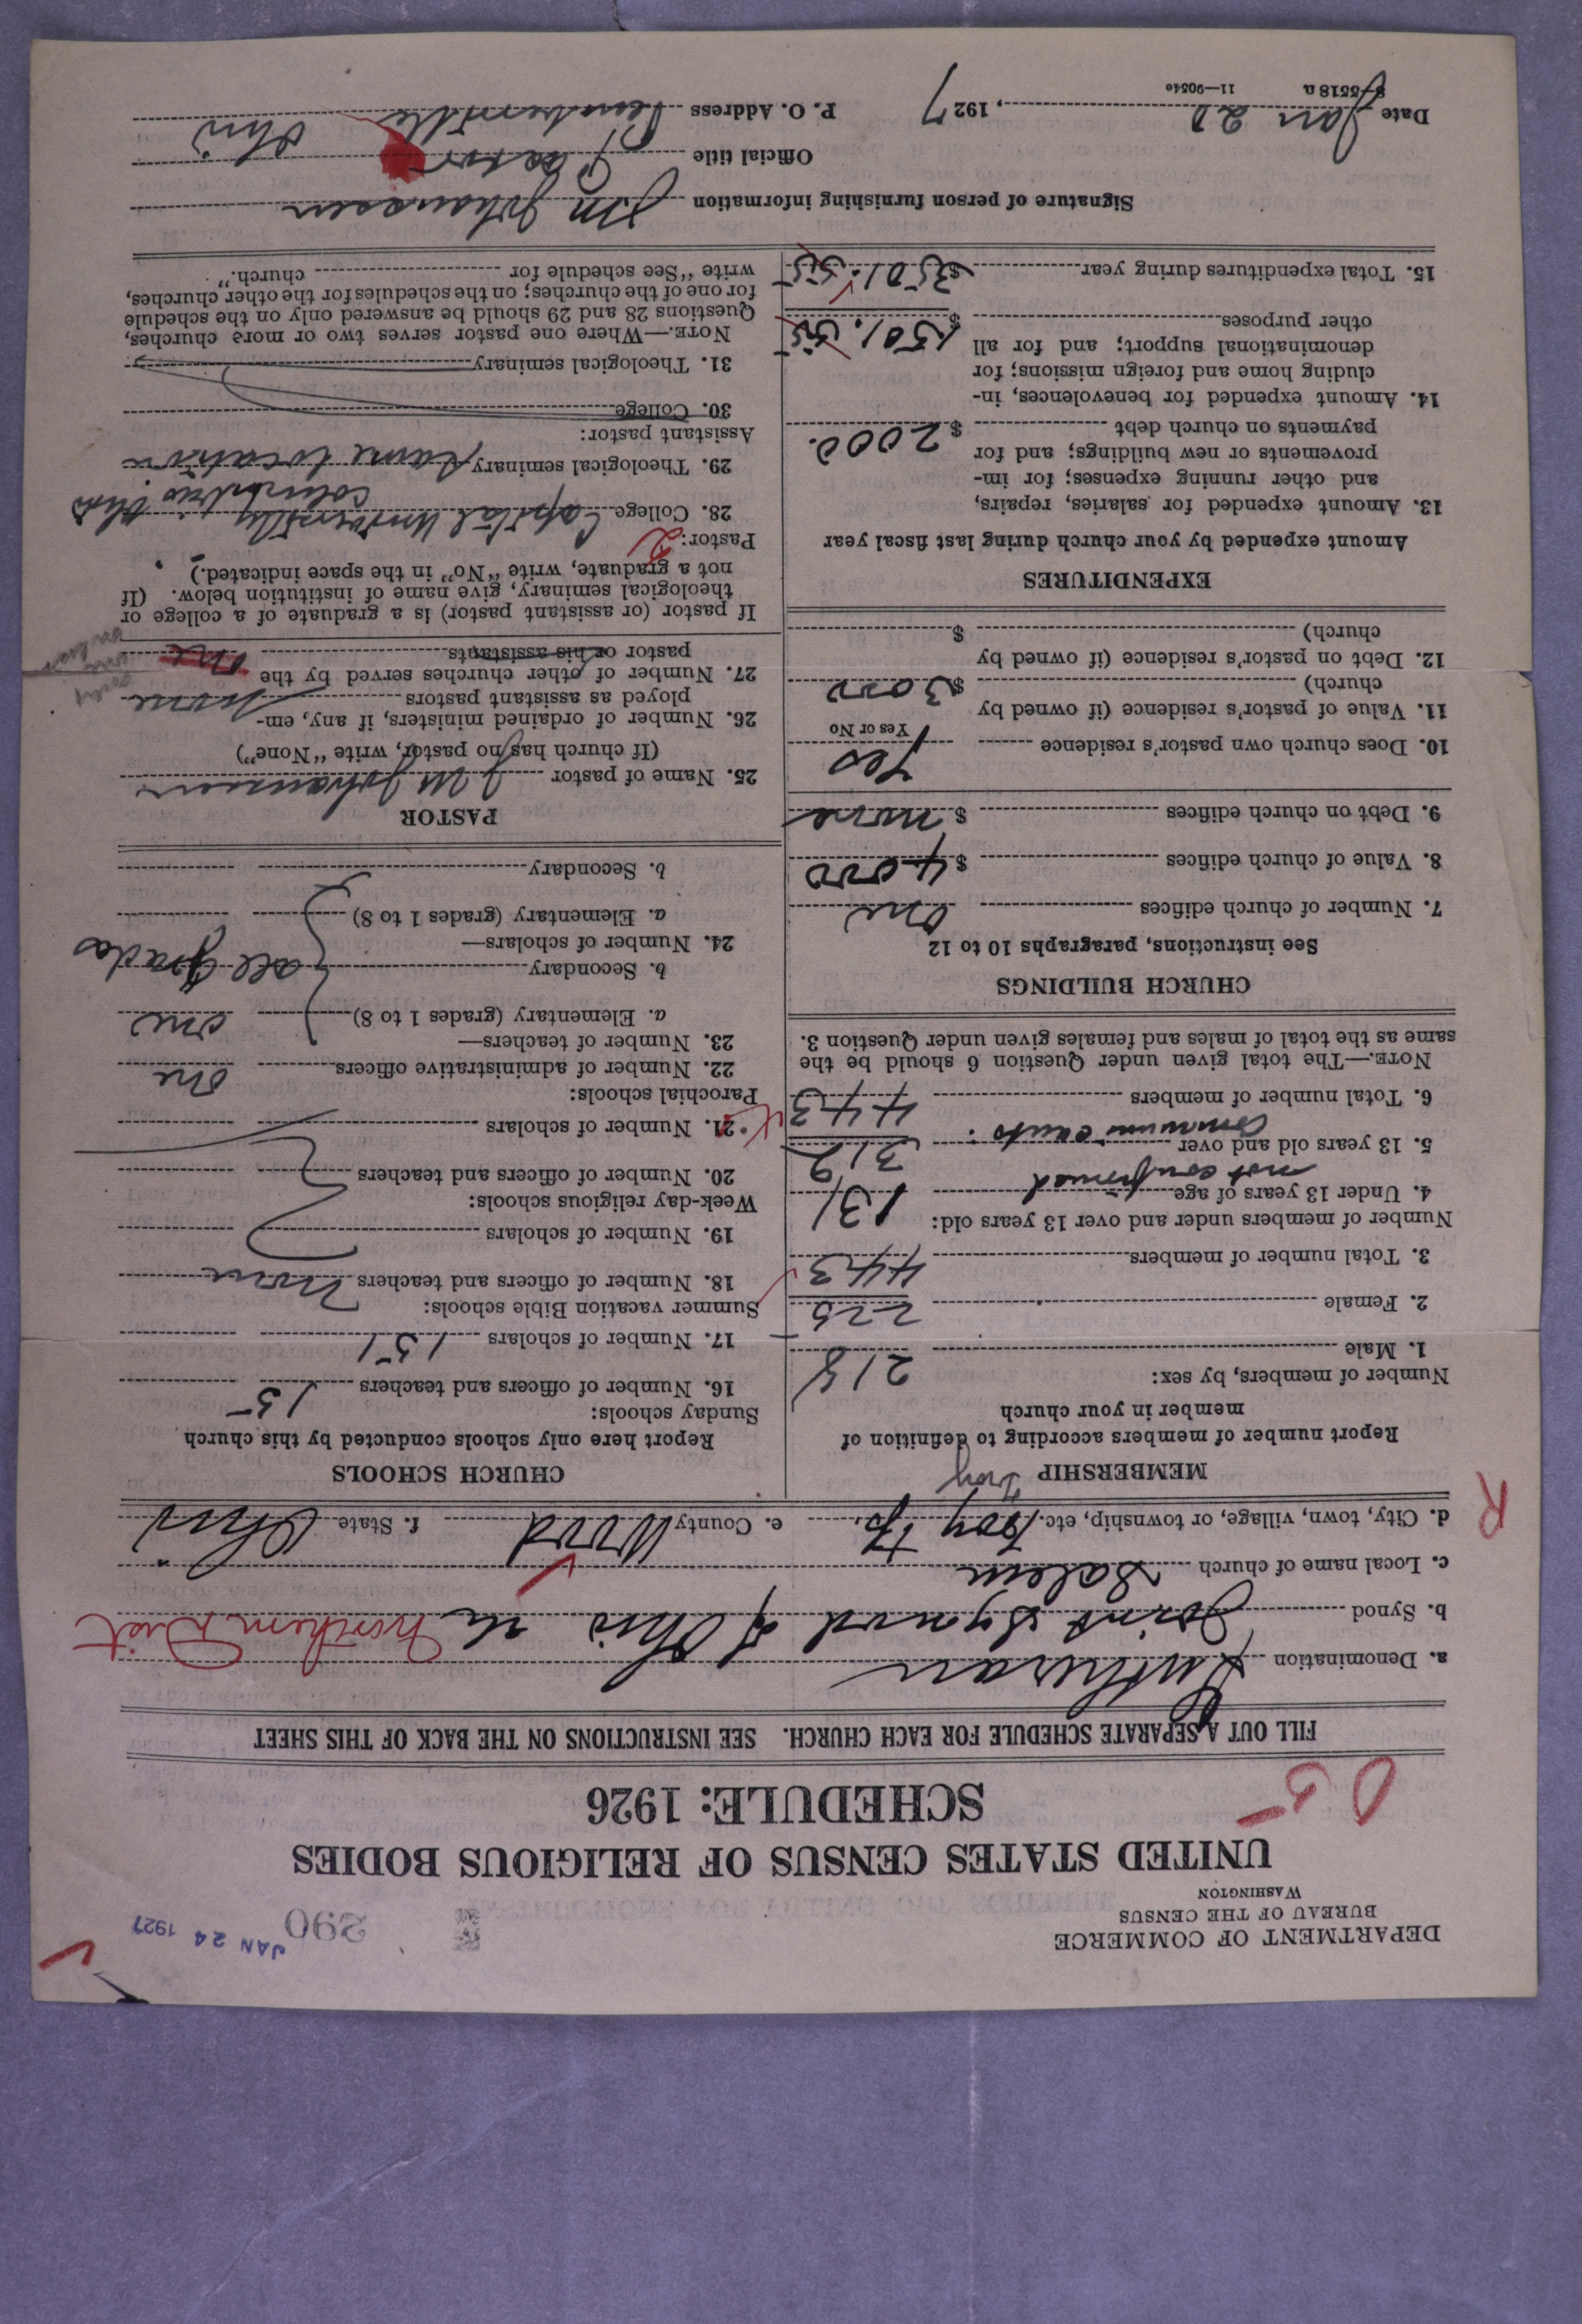 DEPARTMENT OF COMMERCE
BUREAU OF THE CENSUS
WASHINGTON
290
JAN 24 1927
UNITED STATES CENSUS OF RELIGIOUS BODIES
SCHEDULE: 1926
05
FILL OUT A SEPARATE SCHEDULE FOR EACH CHURCH. SEE INSTRUCTIONS ON THE BACK OF THIS SHEET
a. Denomination Lutheran
b. Synod Joint Synod of Ohio Northern Dist
c. Local name of church Salem
R
d. City, town, village, or township, etc. Troy Tp. e. County Wood f. State Ohio
MEMBERSHIP Troy
Report number of members according to definition of
member in your church
Number of members, by sex:
1. Male 218
2. Female 225
3. Total number of members 443
Number of members under and over 13 years old:
4. Under 13 years of age not confirmed 131
5. 13 years old and over communicants. 312
6. Total number of members 443
NOTE.—The total given under Question 6 should be the
same as the total of males and females given under Question 3.
CHURCH BUILDINGS
See instructions, paragraphs 10 to 12
7. Number of church edifices one
8. Value of church edifices $ 4000
9. Debt on church edifices $ none
10. Does church own pastor's residence Yes
Yes or No
11. Value of pastor's residence (if owned by
church) $ 3000
12. Debt on pastor's residence (if owned by
church) $
EXPENDITURES
Amount expended by your church during last fiscal year
13. Amount expended for salaries, repairs,
and other running expenses; for im-
provements or new buildings; and for
payments on church debt $ 2000.
14. Amount expended for benevolences, in-
cluding home and foreign missions; for
denominational support; and for all
other purposes $ 1501.55
15. Total expenditures during year $ 3501.55
CHURCH SCHOOLS
Report here only schools conducted by this church
Sunday schools:
16. Number of officers and teachers 15
17. Number of scholars 151
Summer vacation Bible schools:
18. Number of officers and teachers None
19. Number of scholars
Week-day religious schools:
20. Number of officers and teachers
21. Number of scholars
Parochial schools:
22. Number of administrative officers one
23. Number of teachers—
a. Elementary (grades 1 to 8) one
b. Secondary all grades
24. Number of scholars—
a. Elementary (grades 1 to 8)
b. Secondary
PASTOR
25. Name of pastor J M Johansen
(If church has no pastor, write "None")
26. Number of ordained ministers, if any, em-
ployed as assistant pastors none
27. Number of other churches served by the
pastor or his assistants one
If pastor (or assistant pastor) is a graduate of a college or
theological seminary, give name of institution below. (If
not a graduate, write "No" in the space indicated.)
Pastor: 2
28. College Capital University Columbus Ohio
29. Theological seminary same location
Assistant pastor:
30. College
31. Theological seminary
NOTE.—Where one pastor serves two or more churches,
Questions 28 and 29 should be answered only on the schedule
for one of the churches; on the schedules for the other churches,
write "See schedule for church."
Signature of person furnishing information J M Johansen
Official title Pastor
Date Jan 20, 1927 P. O. Address Pemberville Ohio
8-5518 a 11—9054o